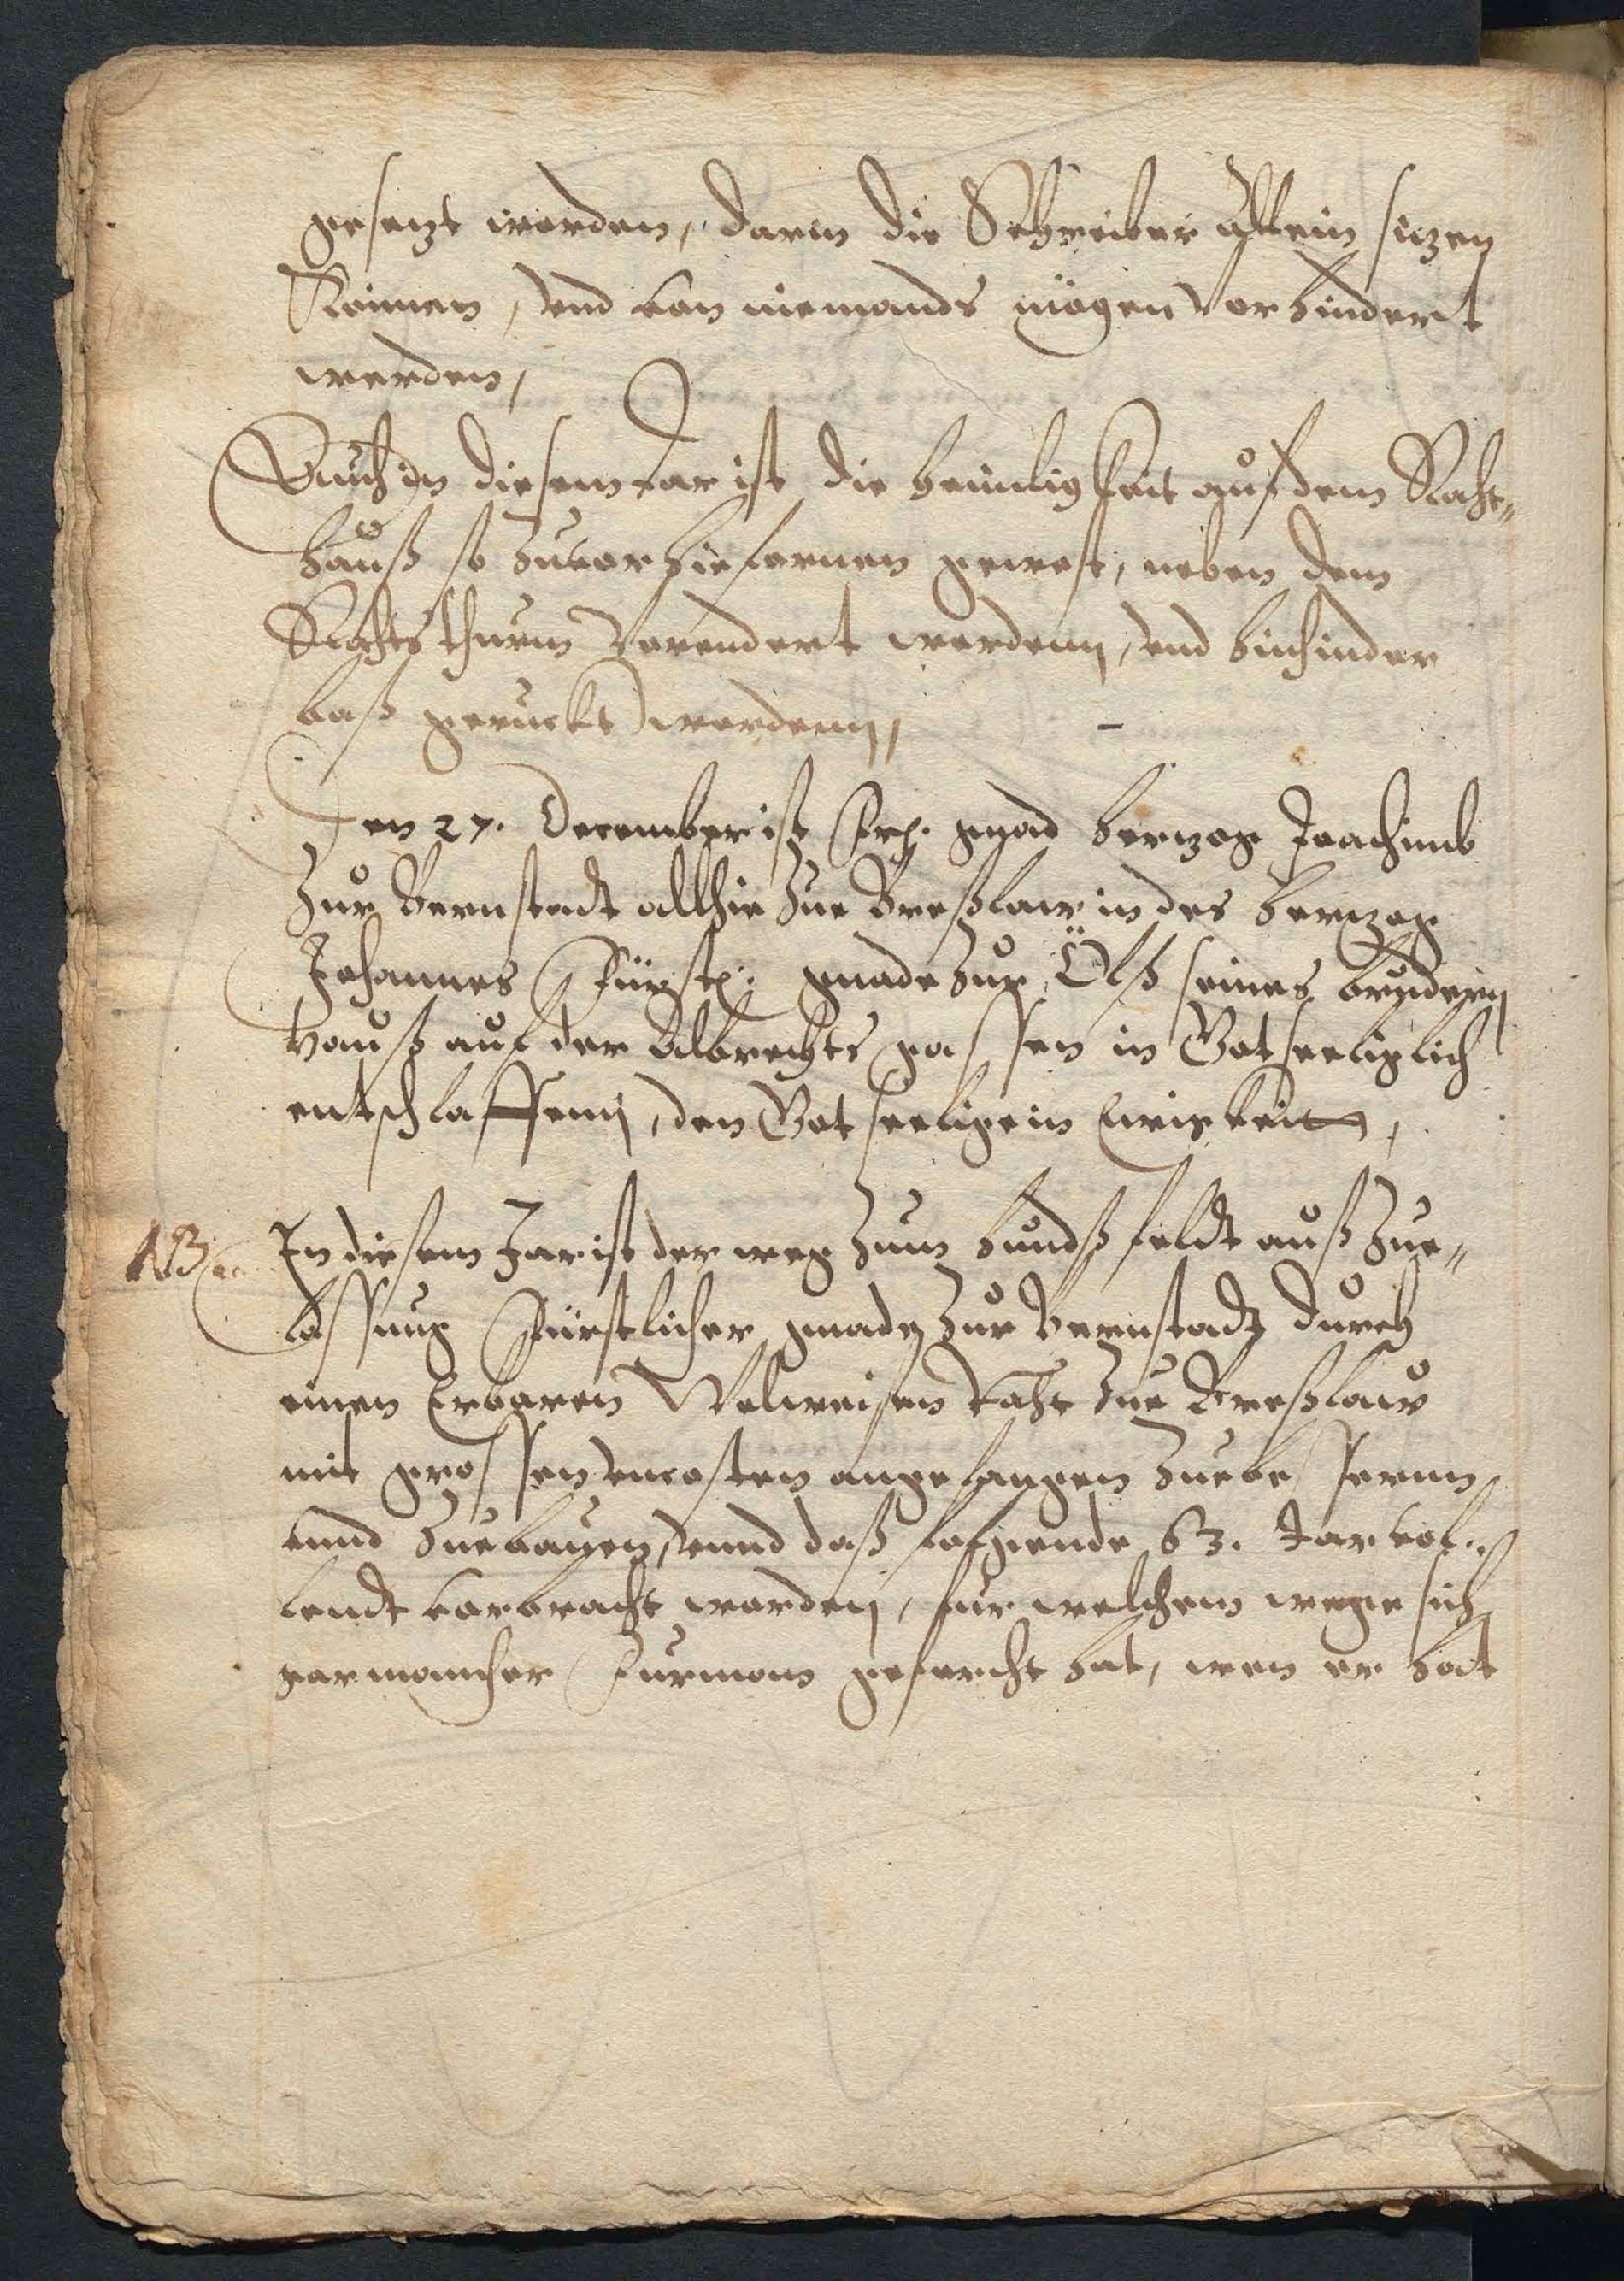 gesetzt worden, darin die Schreiber allein sitzen
Können, vnd von niemands mögen vorhindert
werden,
Auch in diesem Jar ist die heimligkeit auf dem Rath„
hauß so zuvor hie fornen gewest, neben dem
Rathsthurm Verendert wordenn, vnd hinhinder
baß geruckt wordenn,
Den 27. December ist Frh. gnad hertzog Joachimb
Zur Bernstadt allhie Zue Breßlaw in des hertzog
Johannes Fürstl: gnade Zur Ölß seines brudern
hauß auf der Albrechts gassen in Got seeliglich
entschlaffenn, den Got seelige in Ewigkeit,
NB In diesem Jar ist der weg Zum hundßfeldt auß Zue„
lassung Fürstlicher gnade Zur Bernstadt durch
einen Erbaren Wolweisen Raht Zue Breßlaw
mit grossen vncosten angefangen Zuebessernn
vnnd Zuebauen, vnnd daß folgende 63. Jar vol„
lendt vorbracht worden, fur welchem wege sich
gar mancher Furman geforcht hat, wen er hat